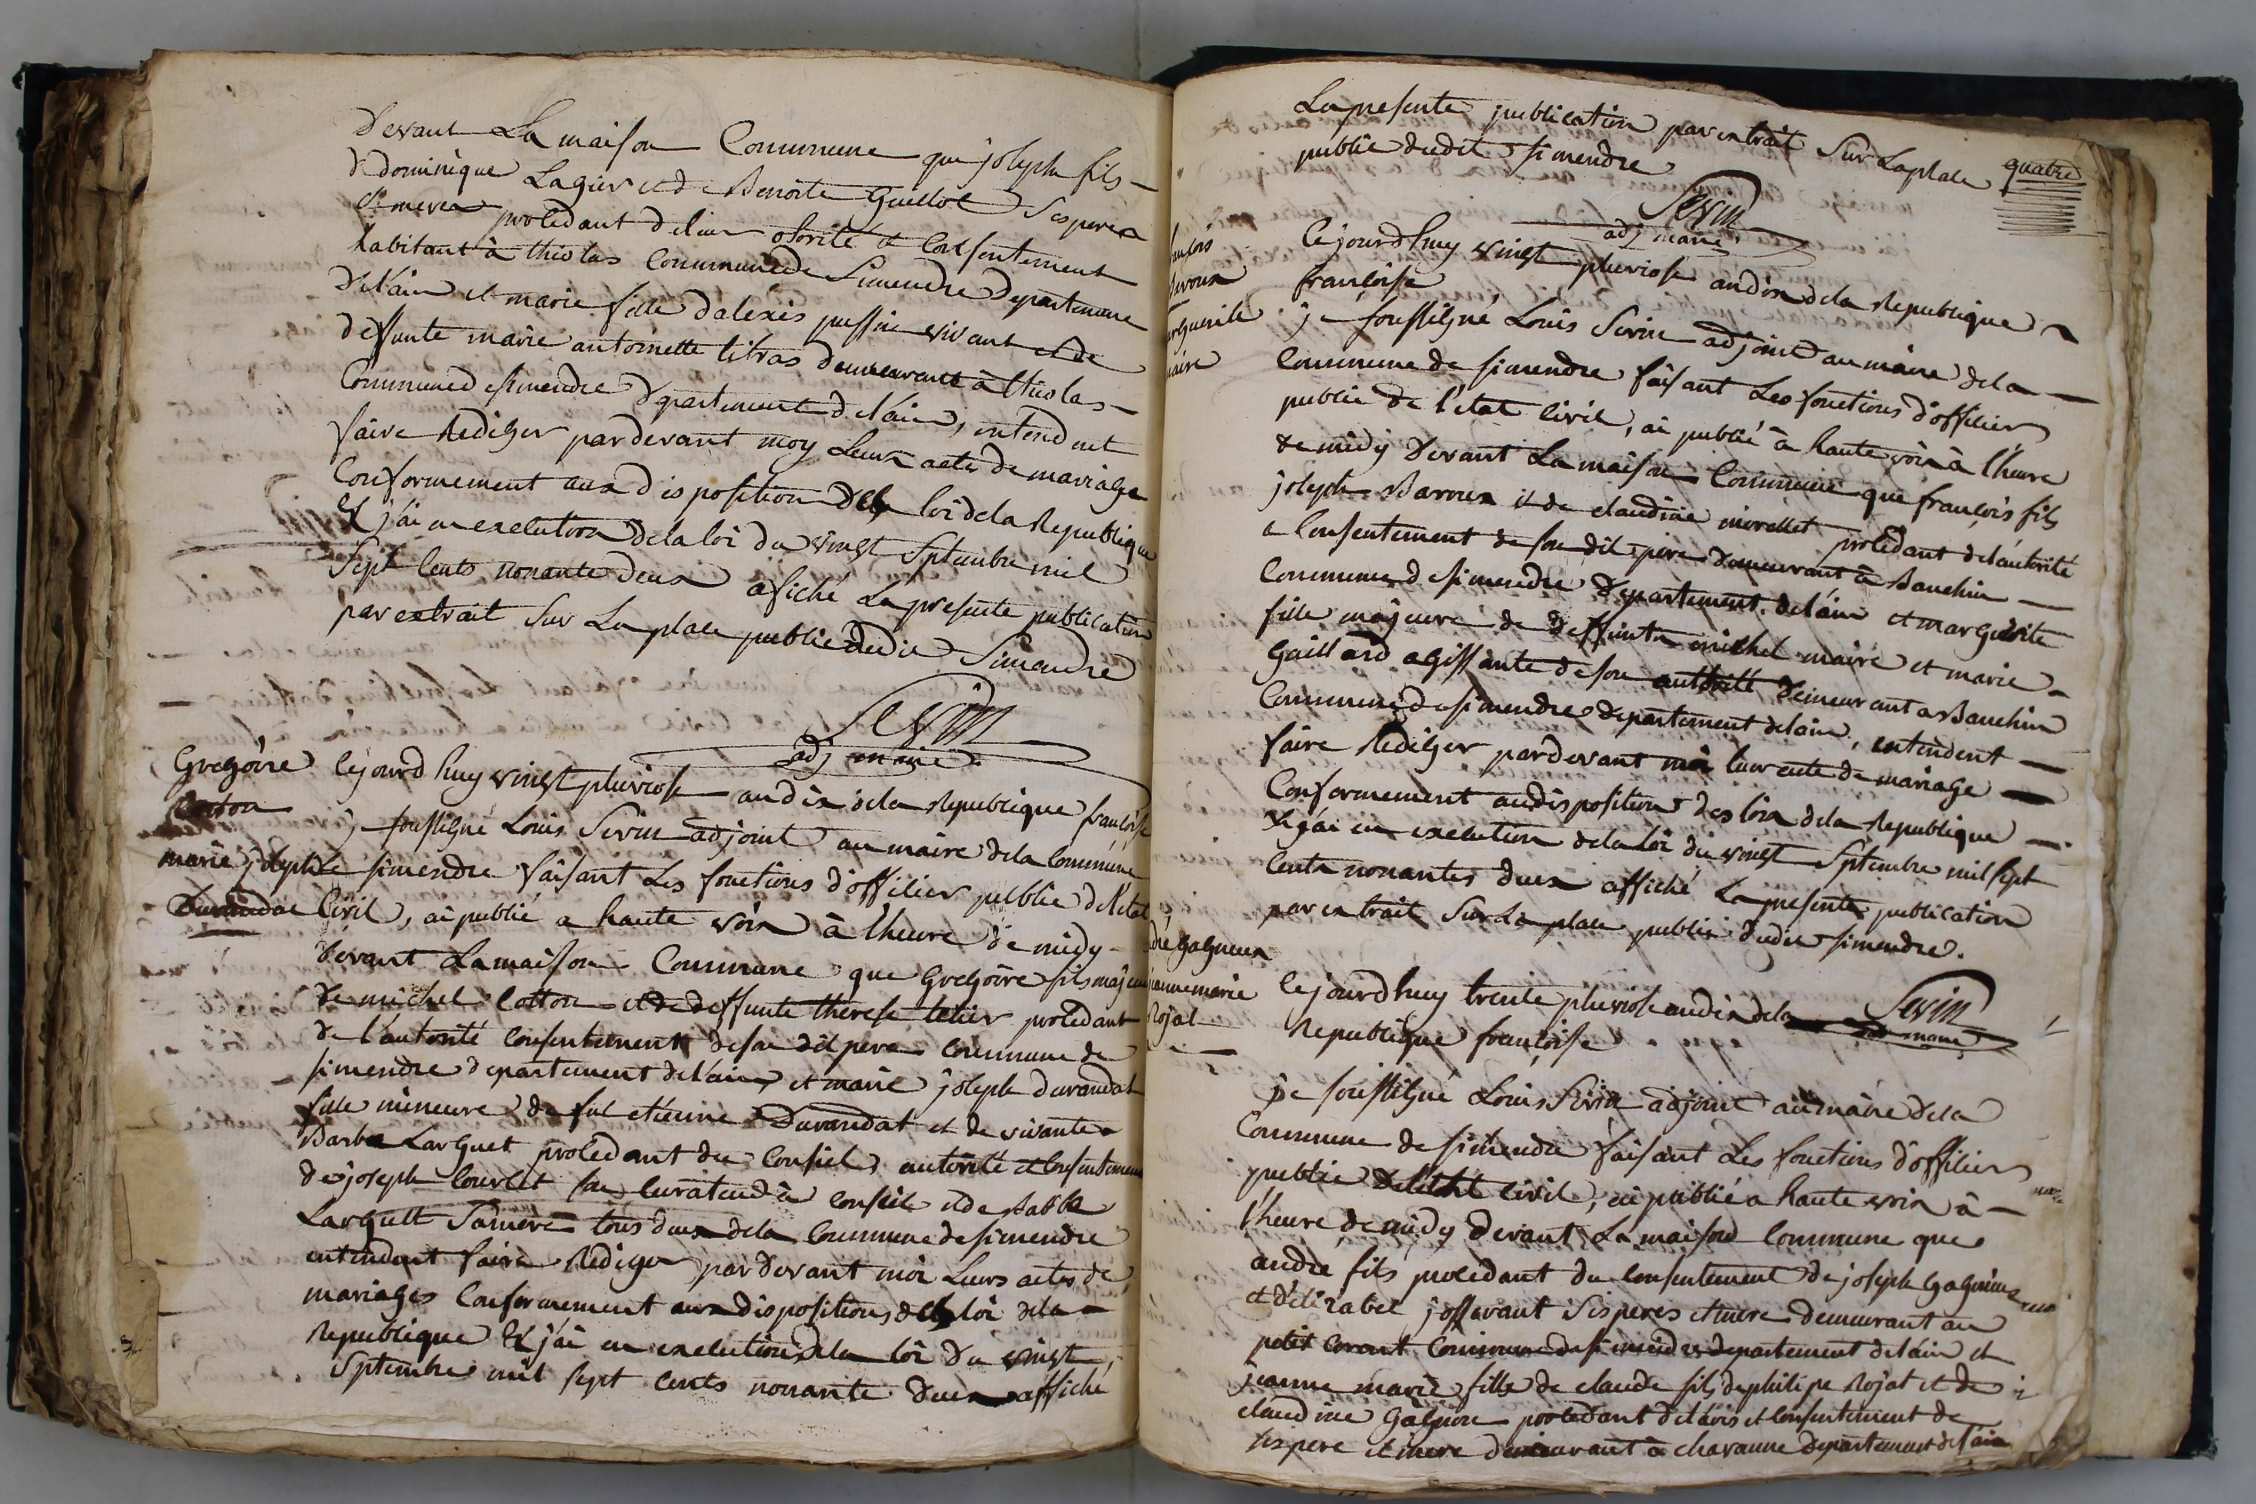 devant La maison Commune que joseph fils
de dominique Lagier et de Benoite Guillot Ses pere
et mere procedant de leur otorité et Consentement
habitant à thiolas Commune de Simendre departement
de l'ain et marie fille d'alexis puffin vivant et de
deffunte marie antoinette libras demeurant à thiolas
Commune de simendre departement de l'ain, intendent
faire Rediger pardevant moy Leurs actes de mariage
Conformement aux disposition de la loi de la Republique
Et j'ai en execution de la loi du vingt Septembre mil
Sept Cents nonante deux afiché La presente publication
par extrait Sur La place publie dudit Simandre
Sevin
adj maire
Gregoire
Cotton
marie joseph
Durandat
Cejourd'huy vingt pluviose an dix de la Republique françoise
je soussigné Louis Sevin adjoint au maire de la Commune
de simendre faisant Les fonctions d'officier publie de l'etat
Civil, ai publié a haute voix à l'heure de midy
devant La maison Commune que Gregoire fils majeur
de michel Cotton et de deffunte therese tetier procedant
de l'autorité Consentement de son dit pere Commune de
simendre departement de l'ain, et marie joseph durandat
fille mineure de fut etienne Durandat et de vivante
Barbe Larguet procedant du Conseil, autorité et Consentement
de joseph Couvlet son Curateur à conseil et de Barbe
Larguet Sa mere tous deux de la Commune de simendre
entendent faire Rediger pardevant moi Leurs actes de
mariages Conformement aux dispositions de la loi de la
Republique Et j'ai en execution de la loi du vingt
Septembre mil sept cents nonante deux affiché
La presente publication par extrait Sur La place
publie dudit simendre
quatre
Sevin
adj maire
Cejourd'huy vingt pluviose an dix de la Republique
françoise
je soussigné Louis Sevin adjoint au maire de la
Commune de simendre faisant Les fonctions d'officier
publie de l'etat Civil, ai publié à haute voix à l'heure
de midy devant La maison Commune que françois fils
joseph Baroux et de claudine morellet procedant de l'autorité
a Consentement de son dit pere demeurant à Bauchin
Commune de simendre departement de l'ain et marguerite
fille majeure de deffunta michel maire et marie
Gaillard agissante de son authorité demeurant a Bauchin
Commune de simendre departement de l'ain, entendent
faire Rediger pardevant moi leur acte de mariage
Conformement au disposition des loix de la Republique
Et j'ai en execution de la loi du vingt Septembre mil sept
Cents nonantes deux affiché La presente publication
par extrait Sur La place publie dudit simendre.
Sevin
adj maire
dré gagneux
jeanne marie
Rojat
Cejourd'huy trente pluviose an dix de la
Republique françoise
je soussigné Louis Sevin adjoint au maire de la
Commune de simendre faisant Les fonctions d'officier
publie de l'etat Civil, ai publié a haute voix à
l'heure de midy devant La maison Commune que
andré fils procedant du Consentement de joseph Gagneux
et d'elizabet josserant Ses peres et mere demeurant au
petit Corant Commune de simendre departement de l'ain et
jeanne marie fille de claude fils de philipe Rojat et de
claudine Gagnion procedant de l'avis et Consentement de
ses pere et mere demeurant à chavanne departement de l'ain